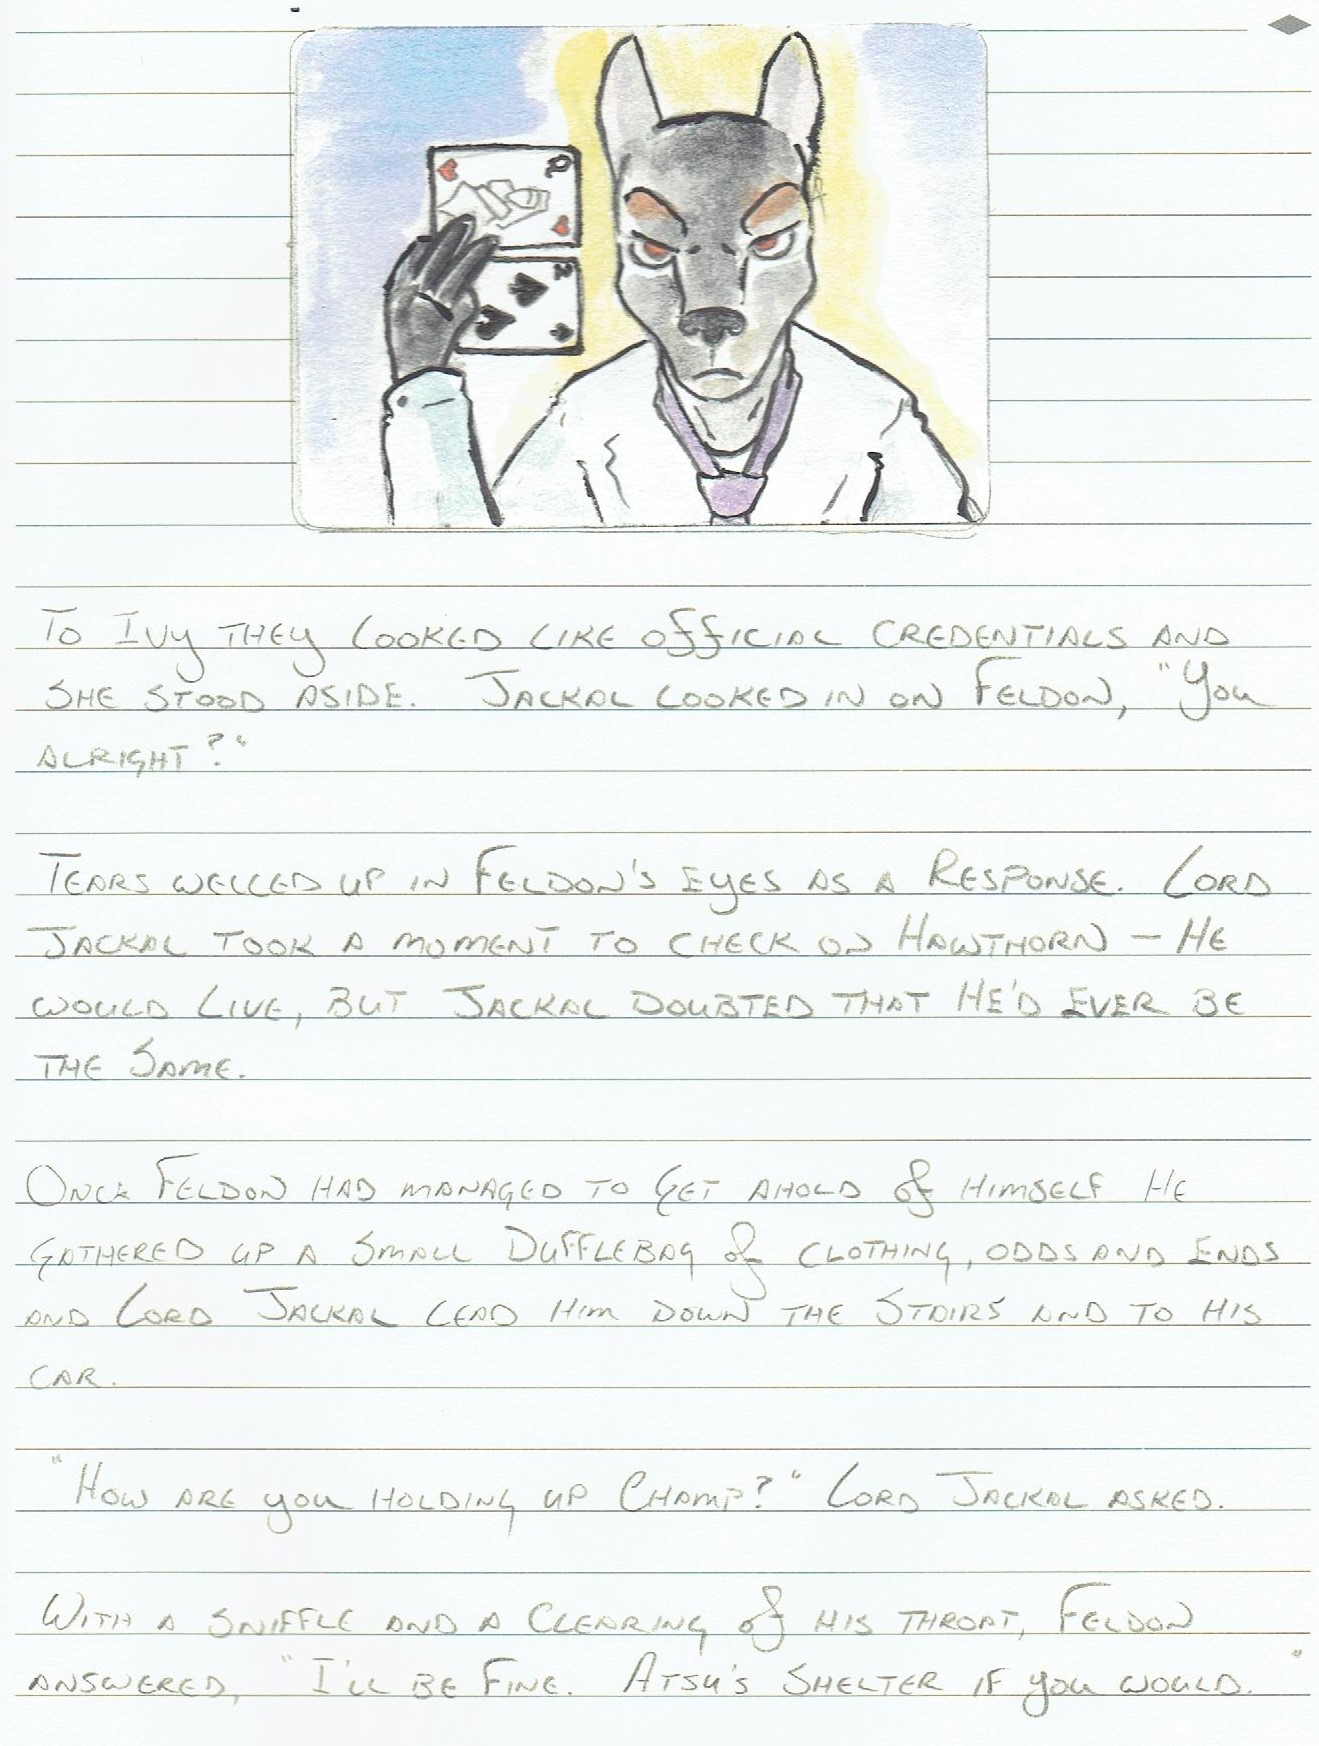 Q
To Ivy they looked like official credentials and
she stood aside. Jackal looked in on Feldon, "You
alright?"
Tears welled up in Feldon's eyes as a response. Lord
Jackal took a moment to check on Hawthorn — he
would live, but Jackal doubted that he'd ever be
the same.
Once Feldon had managed to get ahold of himself he
gathered up a small dufflebag of clothing, odds and ends
and Lord Jackal lead him down the stairs and to his
car.
"How are you holding up Champ?" Lord Jackal asked.
With a sniffle and a clearing of his throat, Feldon
answered, "I'll be fine. Atsu's Shelter if you would."